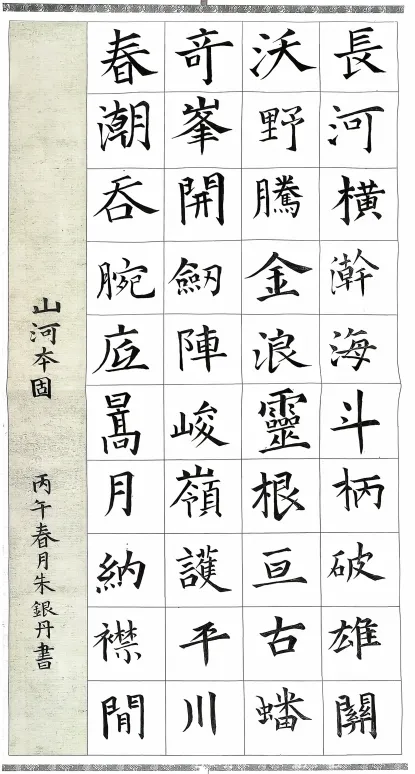 長河橫瀚海斗柄破雄關
沃野騰金浪靈根亘古蟠
奇峯開劔陣峻嶺護平川
春潮吞腕底暠月納襟閒
山河本固
丙午春月朱銀丹書